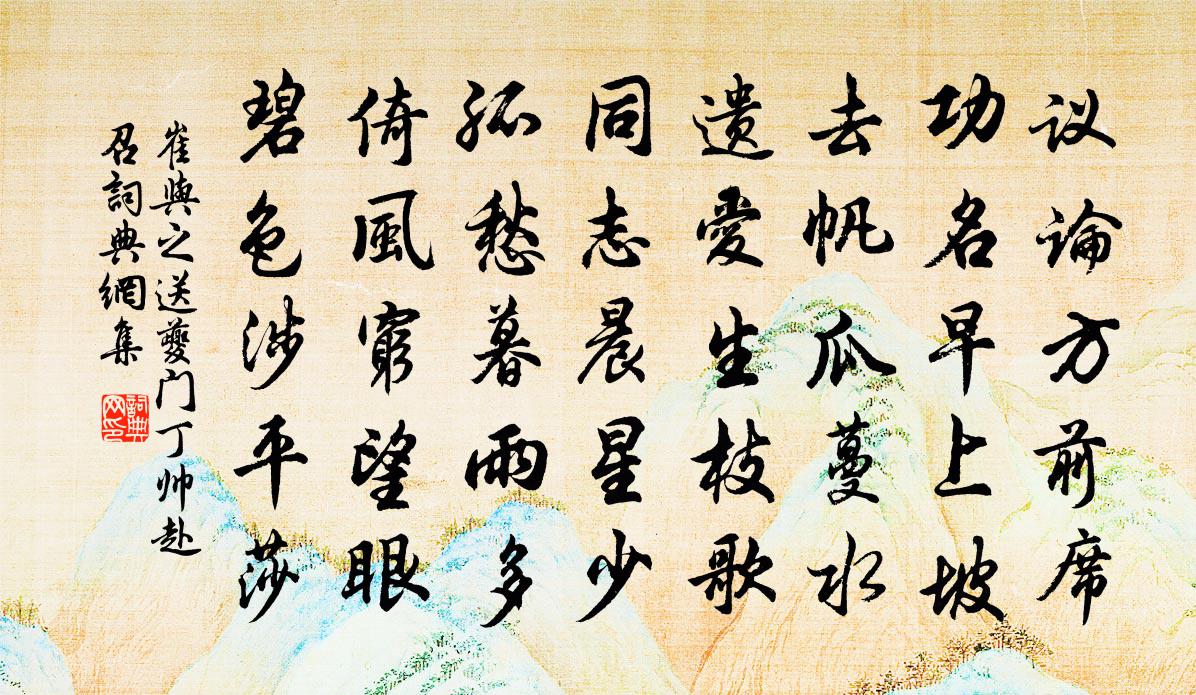 议论方前席
功名早上坡
去帆瓜蔓水
遗愛生枝歌
同志晨星少
孤愁暮雨多
倚風窮望眼
碧色涉平莎
崔與之送夔门丁帅赴
召詞典網集
詞典
网印